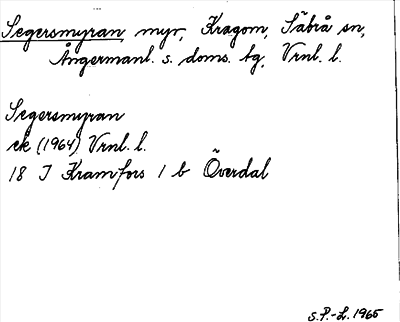 Segersmyran, myr, Kragom, Säbrå sn,
Ångermanl. s. doms. tg, Vrnl. l.
Segersmyran
ek (1964) Vrnl. l.
18 I Kramfors 1 b Överdal
S.P.-L. 1965